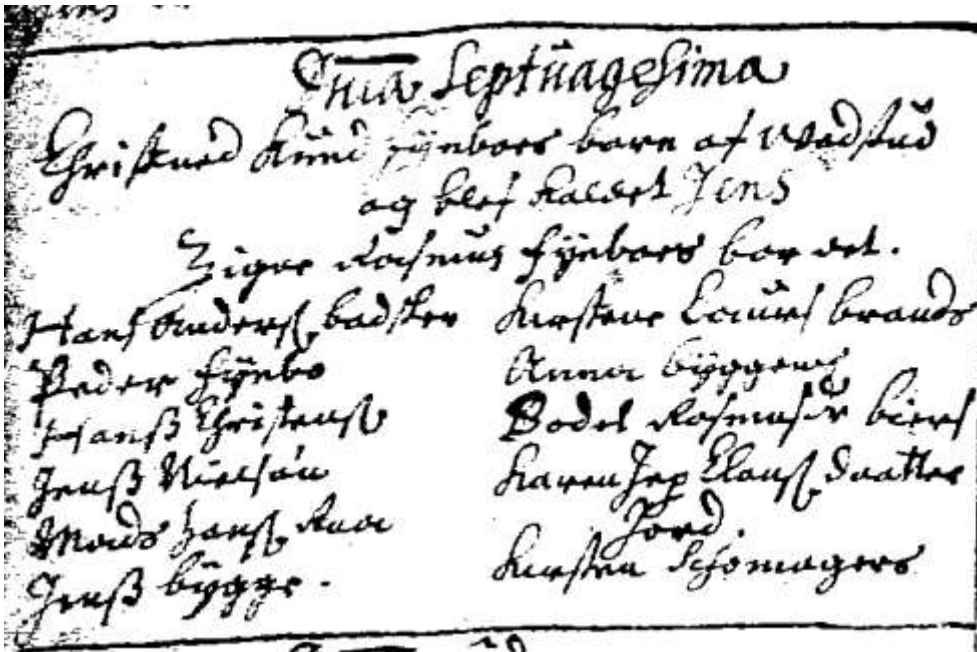 Dnica Septuagesima
Christned Knud fÿnboes barn af Wedstud
og blef kaldet Jens
Rasmus fÿnboes bar det.
Hans Anders. bødker
Peder fÿnbo
Hanß Christenss.
Jenß Nielsøn
Mads Hanss.
Jenß bÿgge.
Kirstene Laurs brands
Anna bÿggens
Bodel Rasmus biers
Karen Jep Clauss. daatter
Kirsten Schomagers